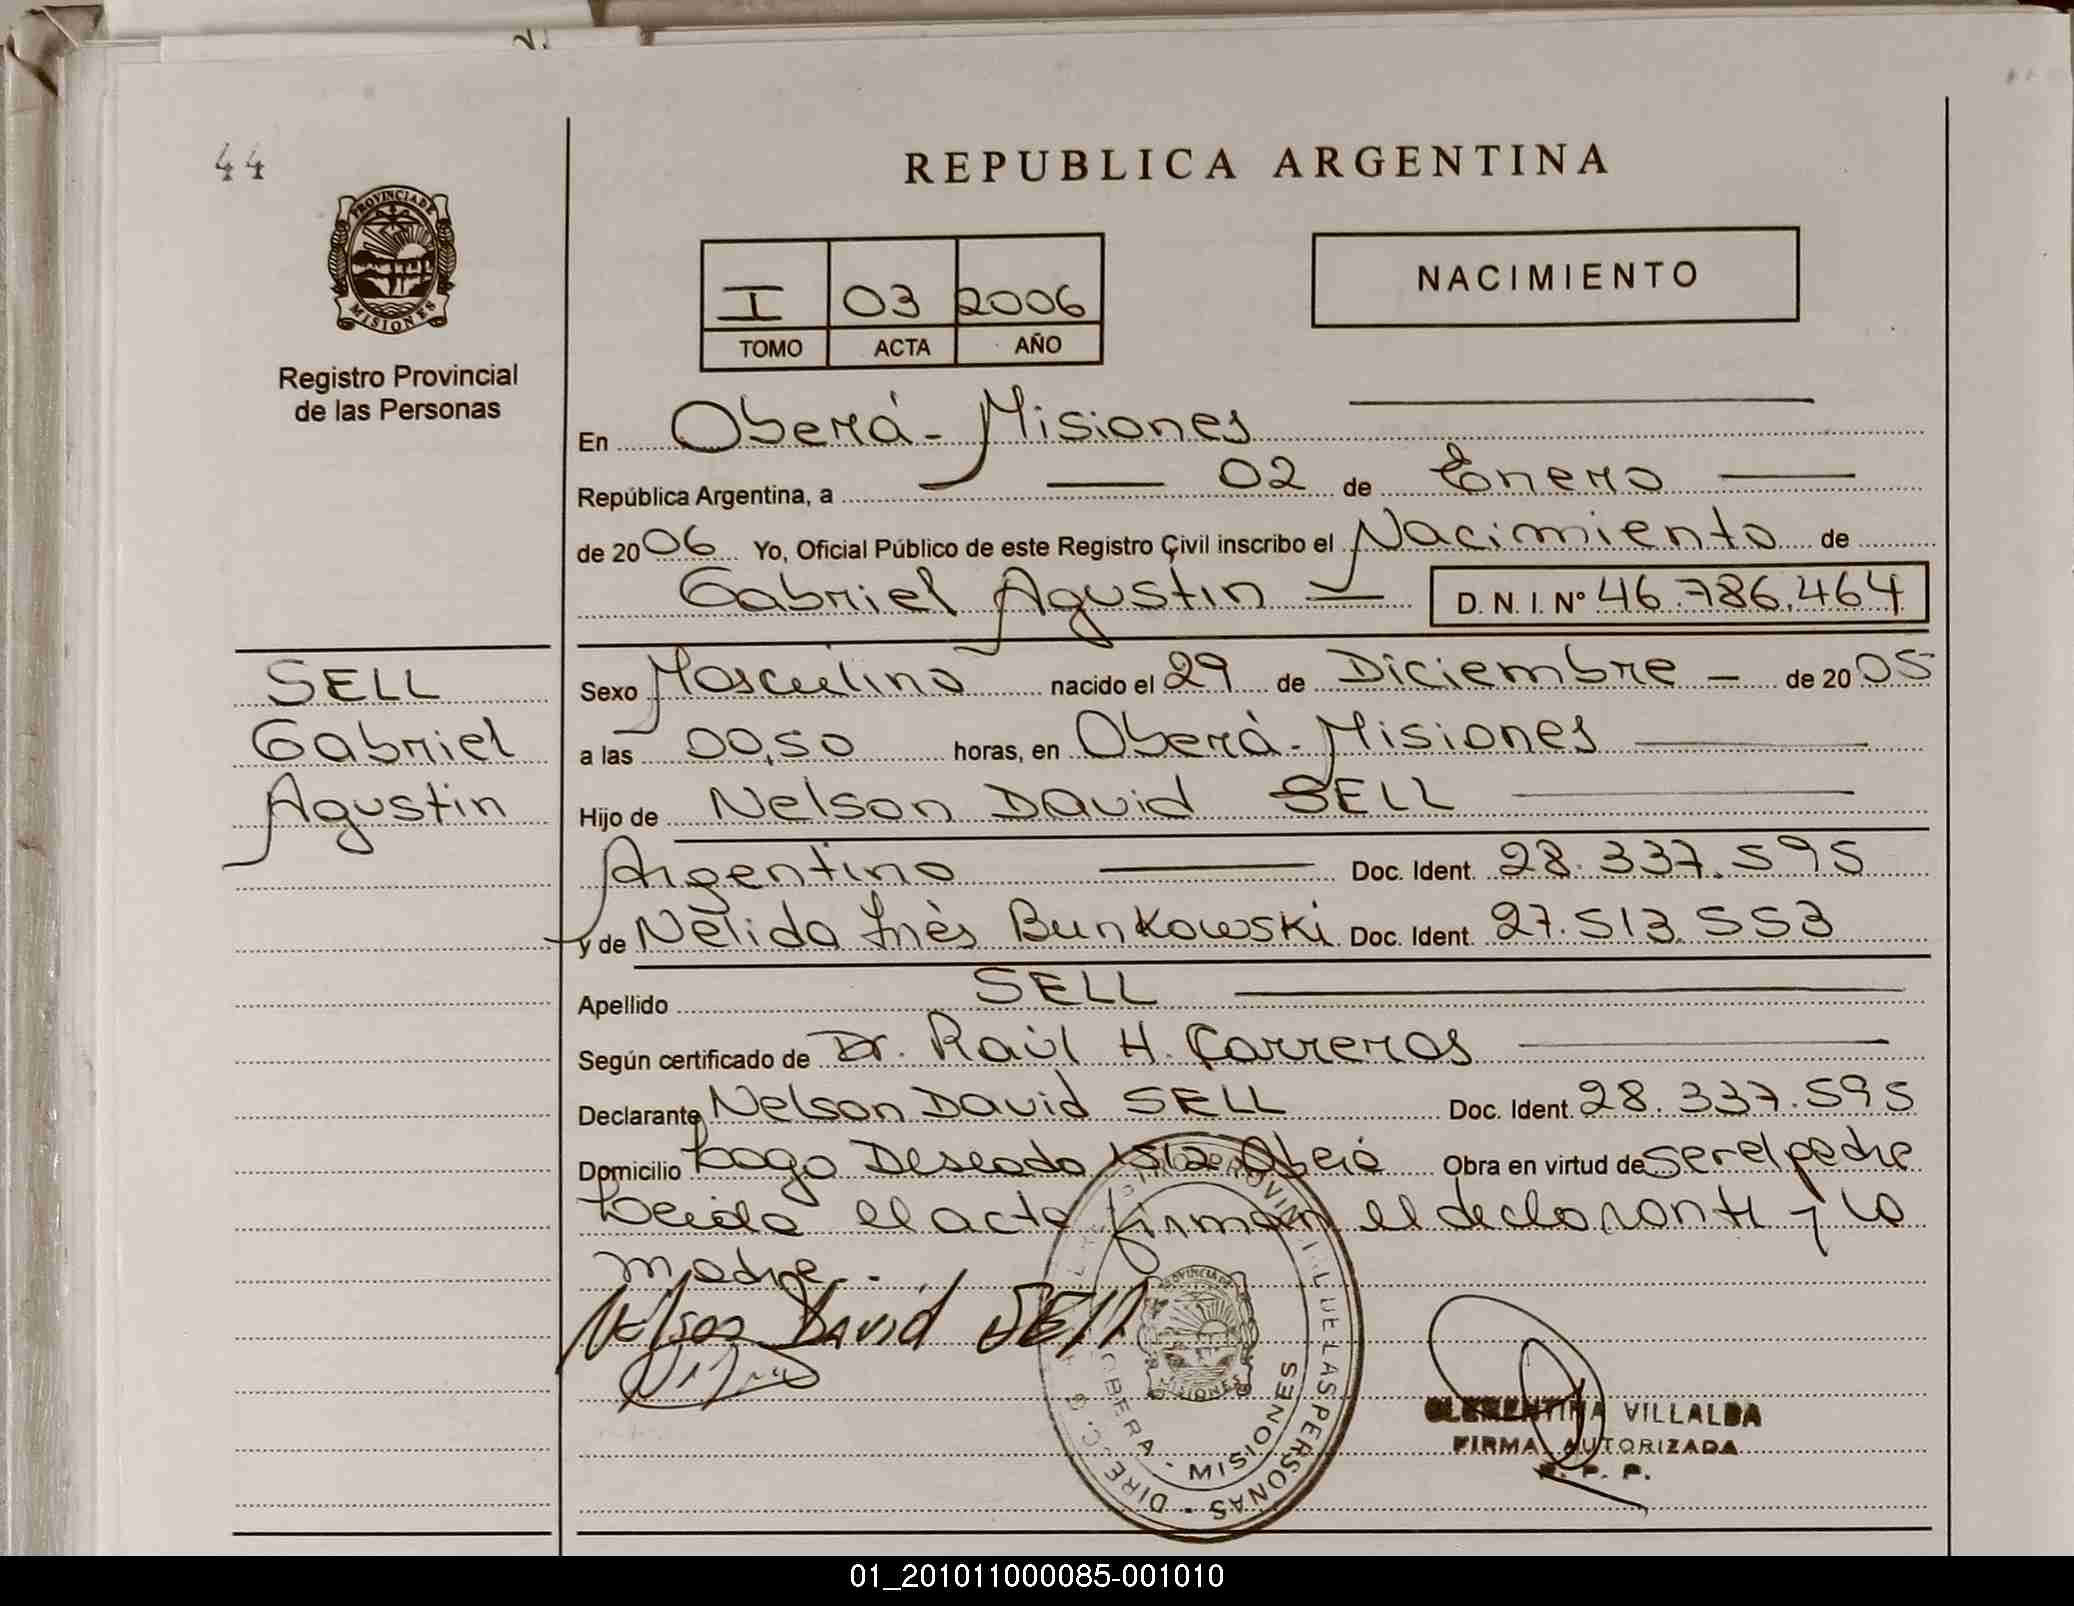 44
REPUBLICA ARGENTINA
PROVINCIA DE
MISIONES
Registro Provincial
de las Personas
I 03 2006
TOMO ACTA AÑO
NACIMIENTO
En Oberá - Misiones
República Argentina, a 02 de Enero
de 2006 Yo, Oficial Público de este Registro Civil inscribo el Nacimiento de
Gabriel Agustin D. N. I. Nº 46.786.464
SELL
Gabriel
Agustin
Sexo Masculino nacido el 29 de Diciembre - de 2005
a las 00,50 horas, en Oberá - Misiones
Hijo de Nelson David SELL
Argentino Doc. Ident. 28.337.595
y de Nélida Inés Bunkowski Doc. Ident. 27.513.553
Apellido SELL
Según certificado de Dr. Raúl H. Carreras
Declarante Nelson David SELL Doc. Ident. 28.337.595
Domicilio Lago Deseado 1512 Oberá Obra en virtud de ser el padre
Leida el acta firman el declarante y la
madre.-
Nelson David SELL
PROVINCIA DE
MISIONES
OBERA - MISIONES
PROVINCIAL DE LAS PERSONAS
CLEMENTINA VILLALBA
FIRMA AUTORIZADA
R. P. P.
01_201011000085-001010